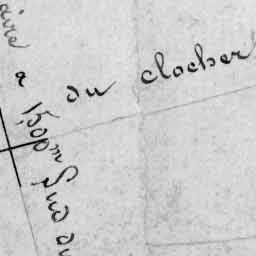 aire a 1,500m Sud du
du clocher